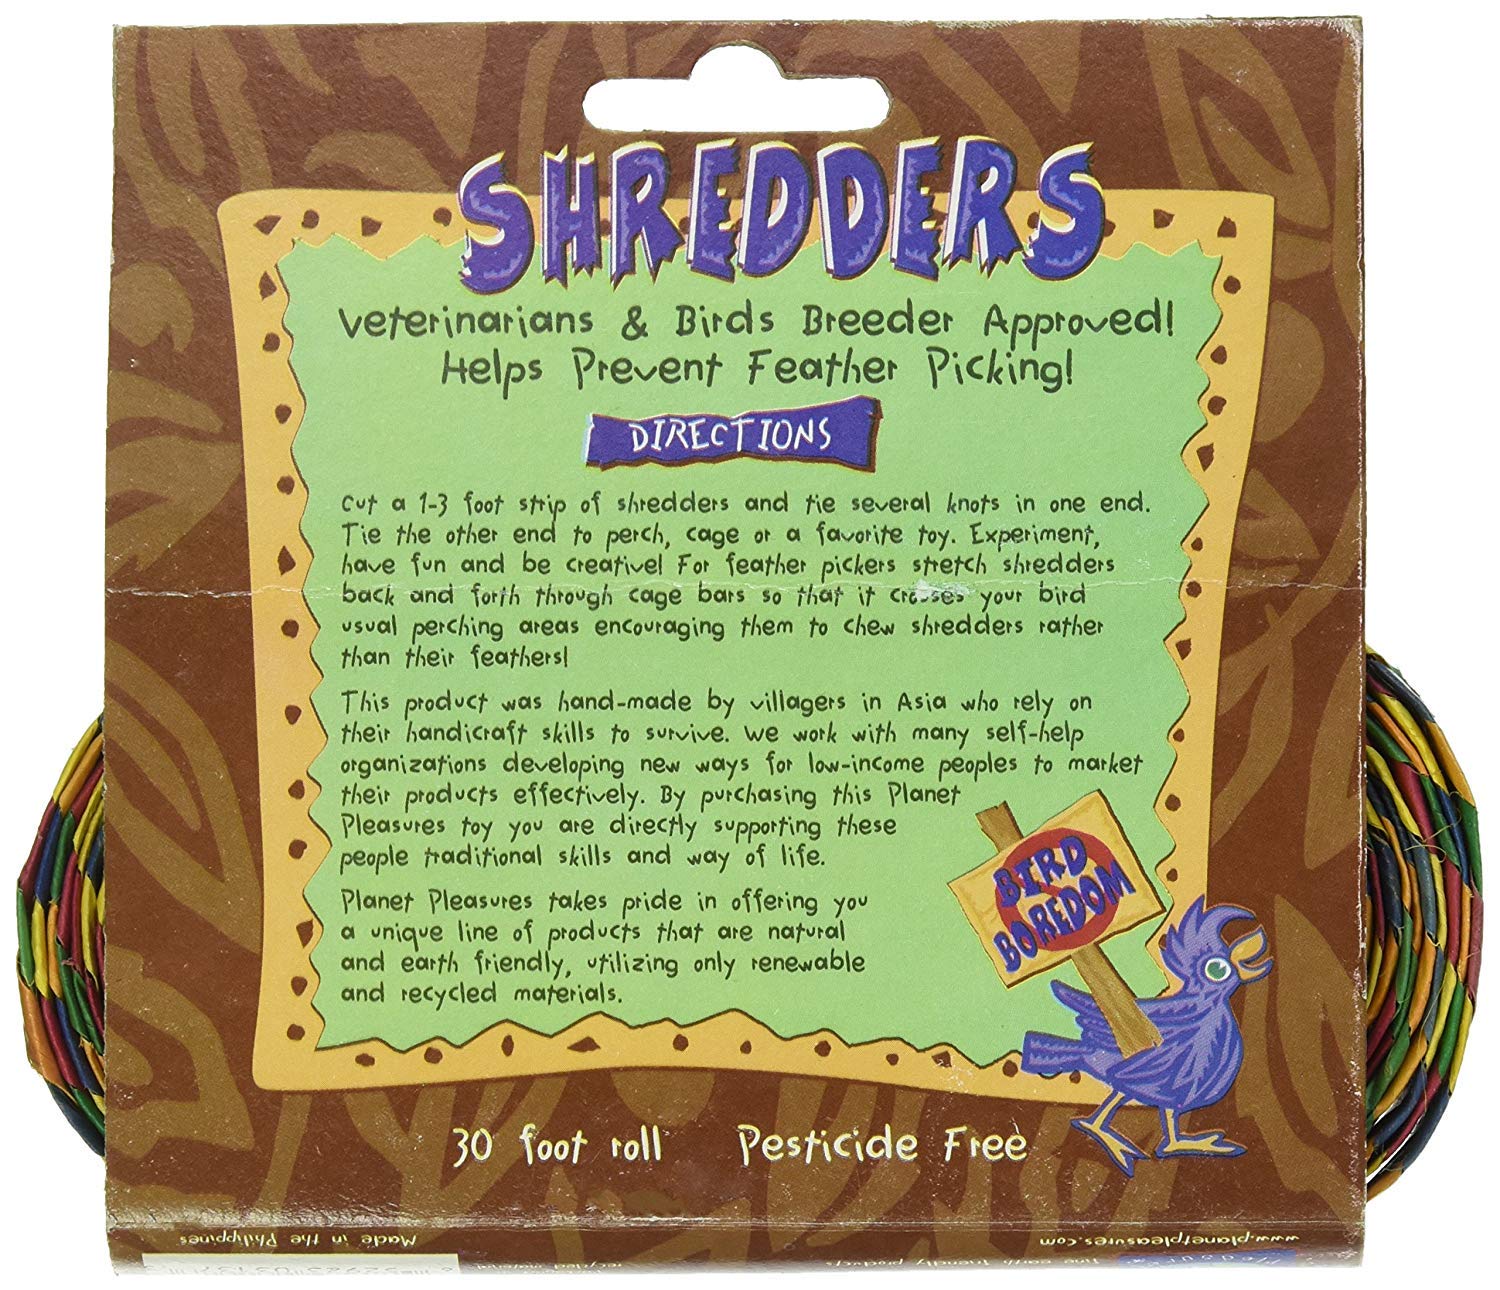 SHREDDERS
Veterinarians & Birds Breeder Approved!
Helps Prevent Feather Picking!
DIRECTIONS
Cut a 1-3 foot strip of shredders and tie several knots in one end.
Tie the other end to perch, cage or a favorite toy. Experiment,
have fun and be creative! For feather pickers stretch shredders
back and forth through cage bars so that it crosses your bird
usual perching areas encouraging them to chew shredders rather
than their feathers!
This product was hand-made by villagers in Asia who rely on
their handicraft skills to survive. We work with many self-help
organizations developing new ways for low-income peoples to market
their products effectively. By purchasing this Planet
Pleasures toy you are directly supporting these
people traditional skills and way of life.
Planet Pleasures takes pride in offering you
a unique line of products that are natural
and earth friendly, utilizing only renewable
and recycled materials.
BIRD
BOREDOM
30 foot roll Pesticide Free
Made in the Philippines
www.planetpleasures.com
earth friendly products